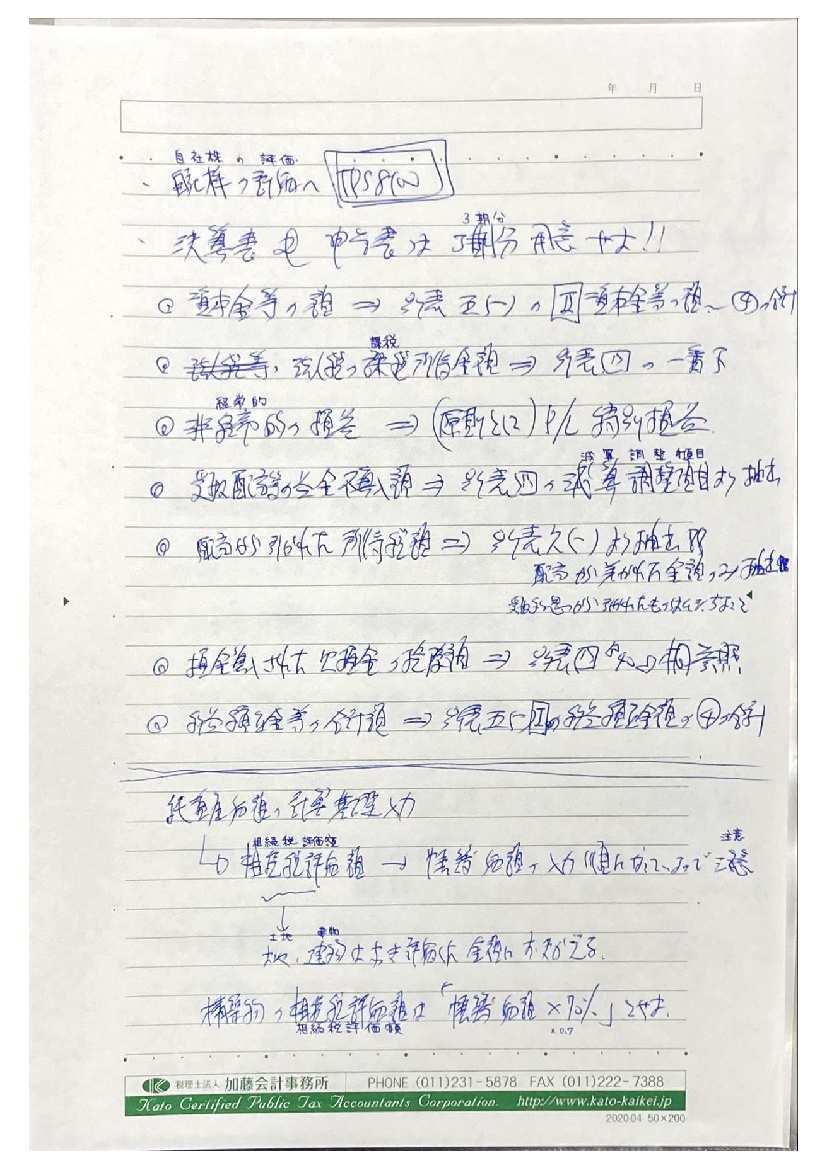 年 月 日
自社株の評価
自社株の評価へ TPS8100
3期分
決算書や申告書は3期分用意せよ!!
◎ 資本金等の額 ⇒ 別表五(一)のⅡ資本金等の額の④の合計
課税
◎ 法人税等、法人税の課税所得金額 ⇒ 別表四の一番下
経常的
◎ 非経常的の損益 ⇒ (原則として) P/L 特別損益
減算調整項目
◎ 受取配当等の益金不算入額 ⇒ 別表四の減算調整項目より抽出
◎ 配当から引かれた所得税額 ⇒ 別表六(一)より抽出
配当から差かれた金額のみ抽出
受取利息から引かれたものは
◎ 損金算入された欠損金の控除額 ⇒ 別表四 の欄参照
◎ 利益積立金等の合計額 ⇒ 別表五(一)Ⅱの利益積立金額の④の合計
純資産価額の計算 入力
相続税評価額
相続税評価額 → 帳簿価額の入力 ので注意
注意
土地 建物
土地、建物は 評価した金額におきかえる。
構築物の相続税評価額は「帳簿価額×70%」とせよ。
相続税評価額 ×0.7
税理士法人 加藤会計事務所 PHONE (011)231-5878 FAX (011)222-7388
Kato Certified Public Tax Accountants Corporation. http://www.kato-kaikei.jp
2020.04 50×200